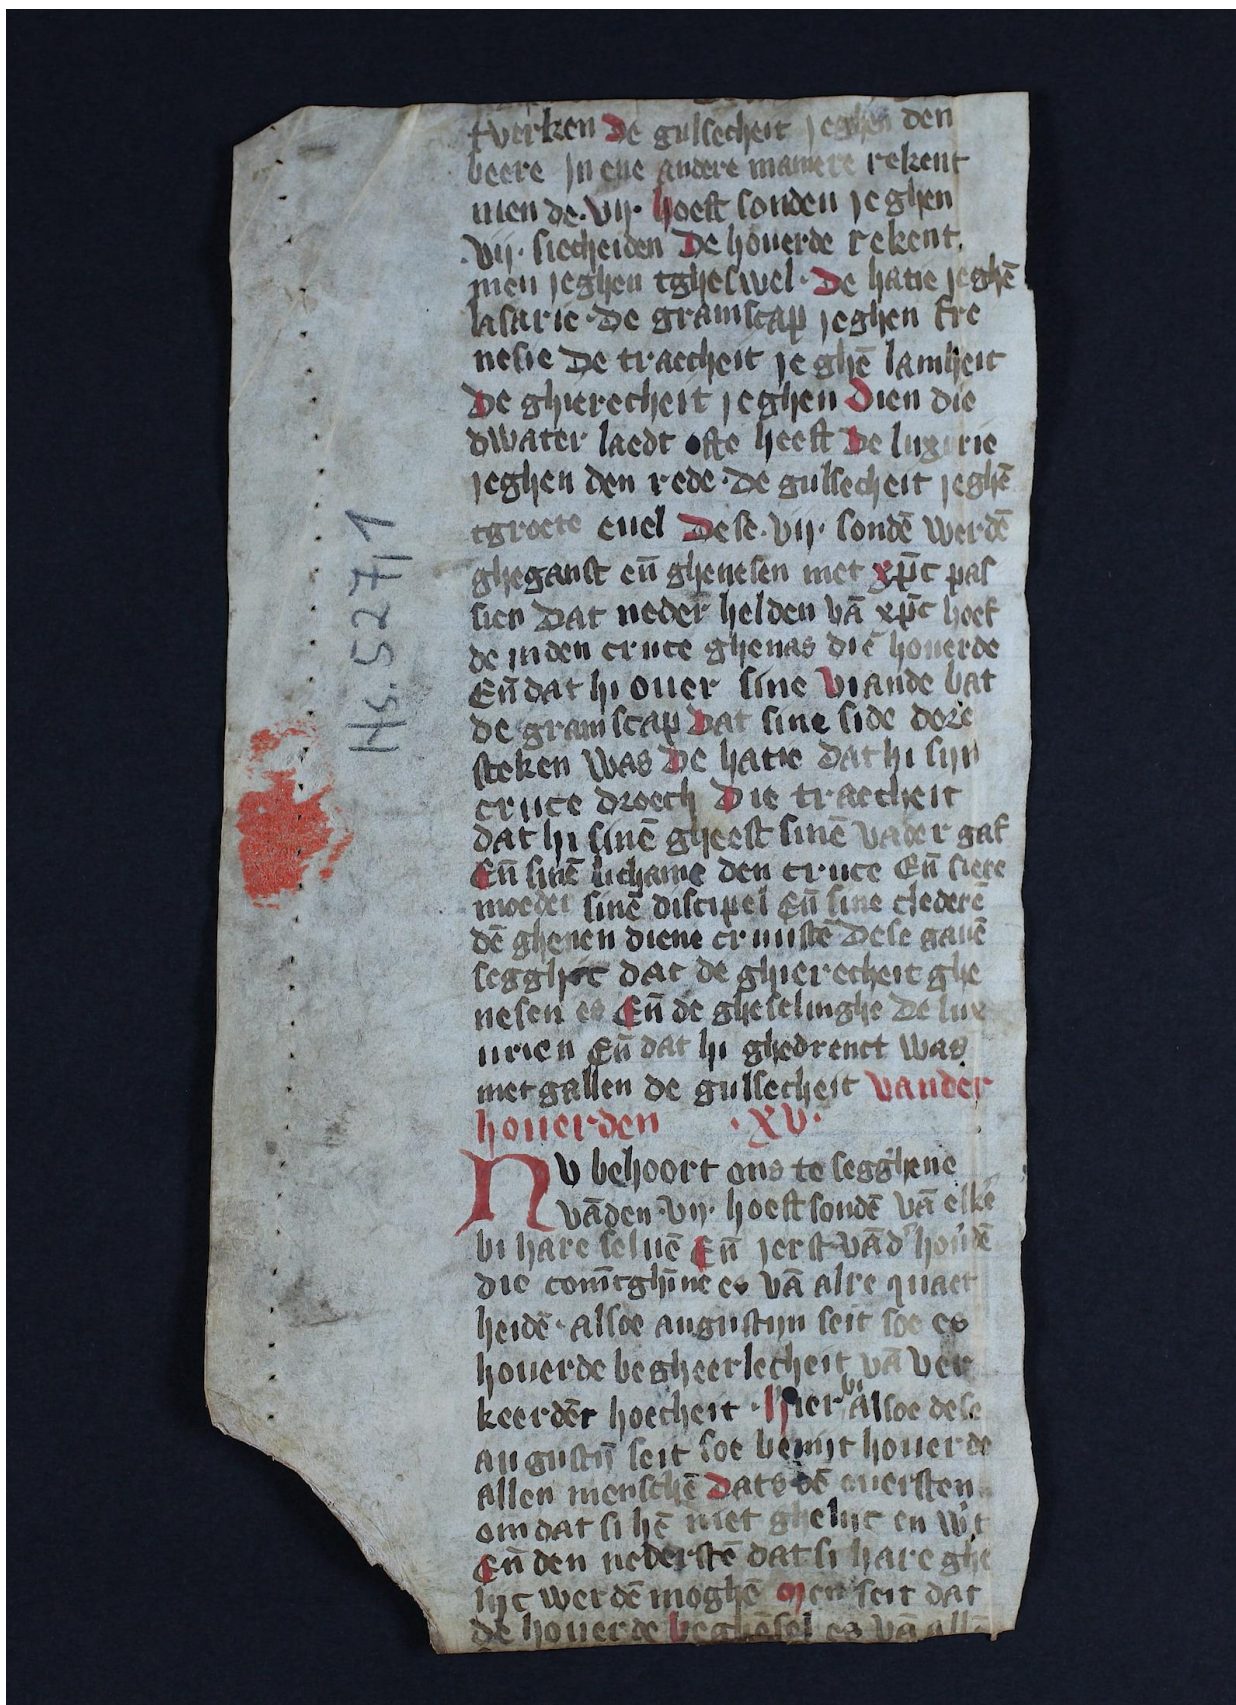 tverken De gulsecheit jeghen den
beere Jn ene andere maniere rekent
men de .vij. hoeft sonden jeghen
.vij. siecheiden De houerde rekent
men jeghen tgheswel. De hatie jeghē
lasarie. De gramscap jeghen fre
nesie De traecheit jeghē lamheit
De ghierecheit jeghen Dien die
dwater laedt ofte heeft De luxurie
jeghen den rede. De gulsecheit jeghē
tgroete euel Dese .vij. sondē werdē
gheganst eñ ghenesen met xp̄c pas
sien Dat neder helden vā xp̄c hoef
de jnden cruce ghenas die houerde
Eñ dat hi ouer sine viande bat
de gramscap Dat sine side dore
steken was De hatie dat hi sijn
cruce droech Die traecheit
dat hi sinē gheest sinē vader gaf
Eñ sinē lichame den cruce Eñ siere
moeder sinē discipel Eñ sine clederē
dē ghenen diene cruustē Dese gauē
segghic dat de ghierecheit ghe
nesen es Eñ de gheselinghe De lux
urien Eñ dat hi ghedrenct was
met gallen de gulsecheit vander
houerden .XV.
Nv behoort ons te segghene
vāden .vij. hoeft sondē vā elkē
bi hare seluē Eñ jerst vād' hou'dē
die comīcghīne es vā alre quaet
heidē. alsoe augustijn seit soe es
houerde begheerlecheit vā ver
keerder hoecheit. Hier bi alsoe dese
augustij̄ seit soe benijt houerde
allen menschē Dats dē ouersten
om dat si hē niet ghelijc en w't
Eñ den nederstē dat si hare ghe
lijc werdē moghē Men seit dat
de houerde beghēsel es vā allē
Hs. 527,1